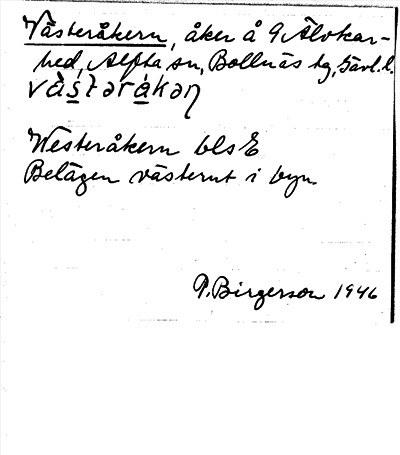 Västeråkern, åker å 9 Älvkar-
hed, Alfta sn, Bollnäs tg, Gävl.l.
vä̀s̲tərák̲əη
Westeråkern bls E
Belägen västerut i byn.
P. Birgerson 1946